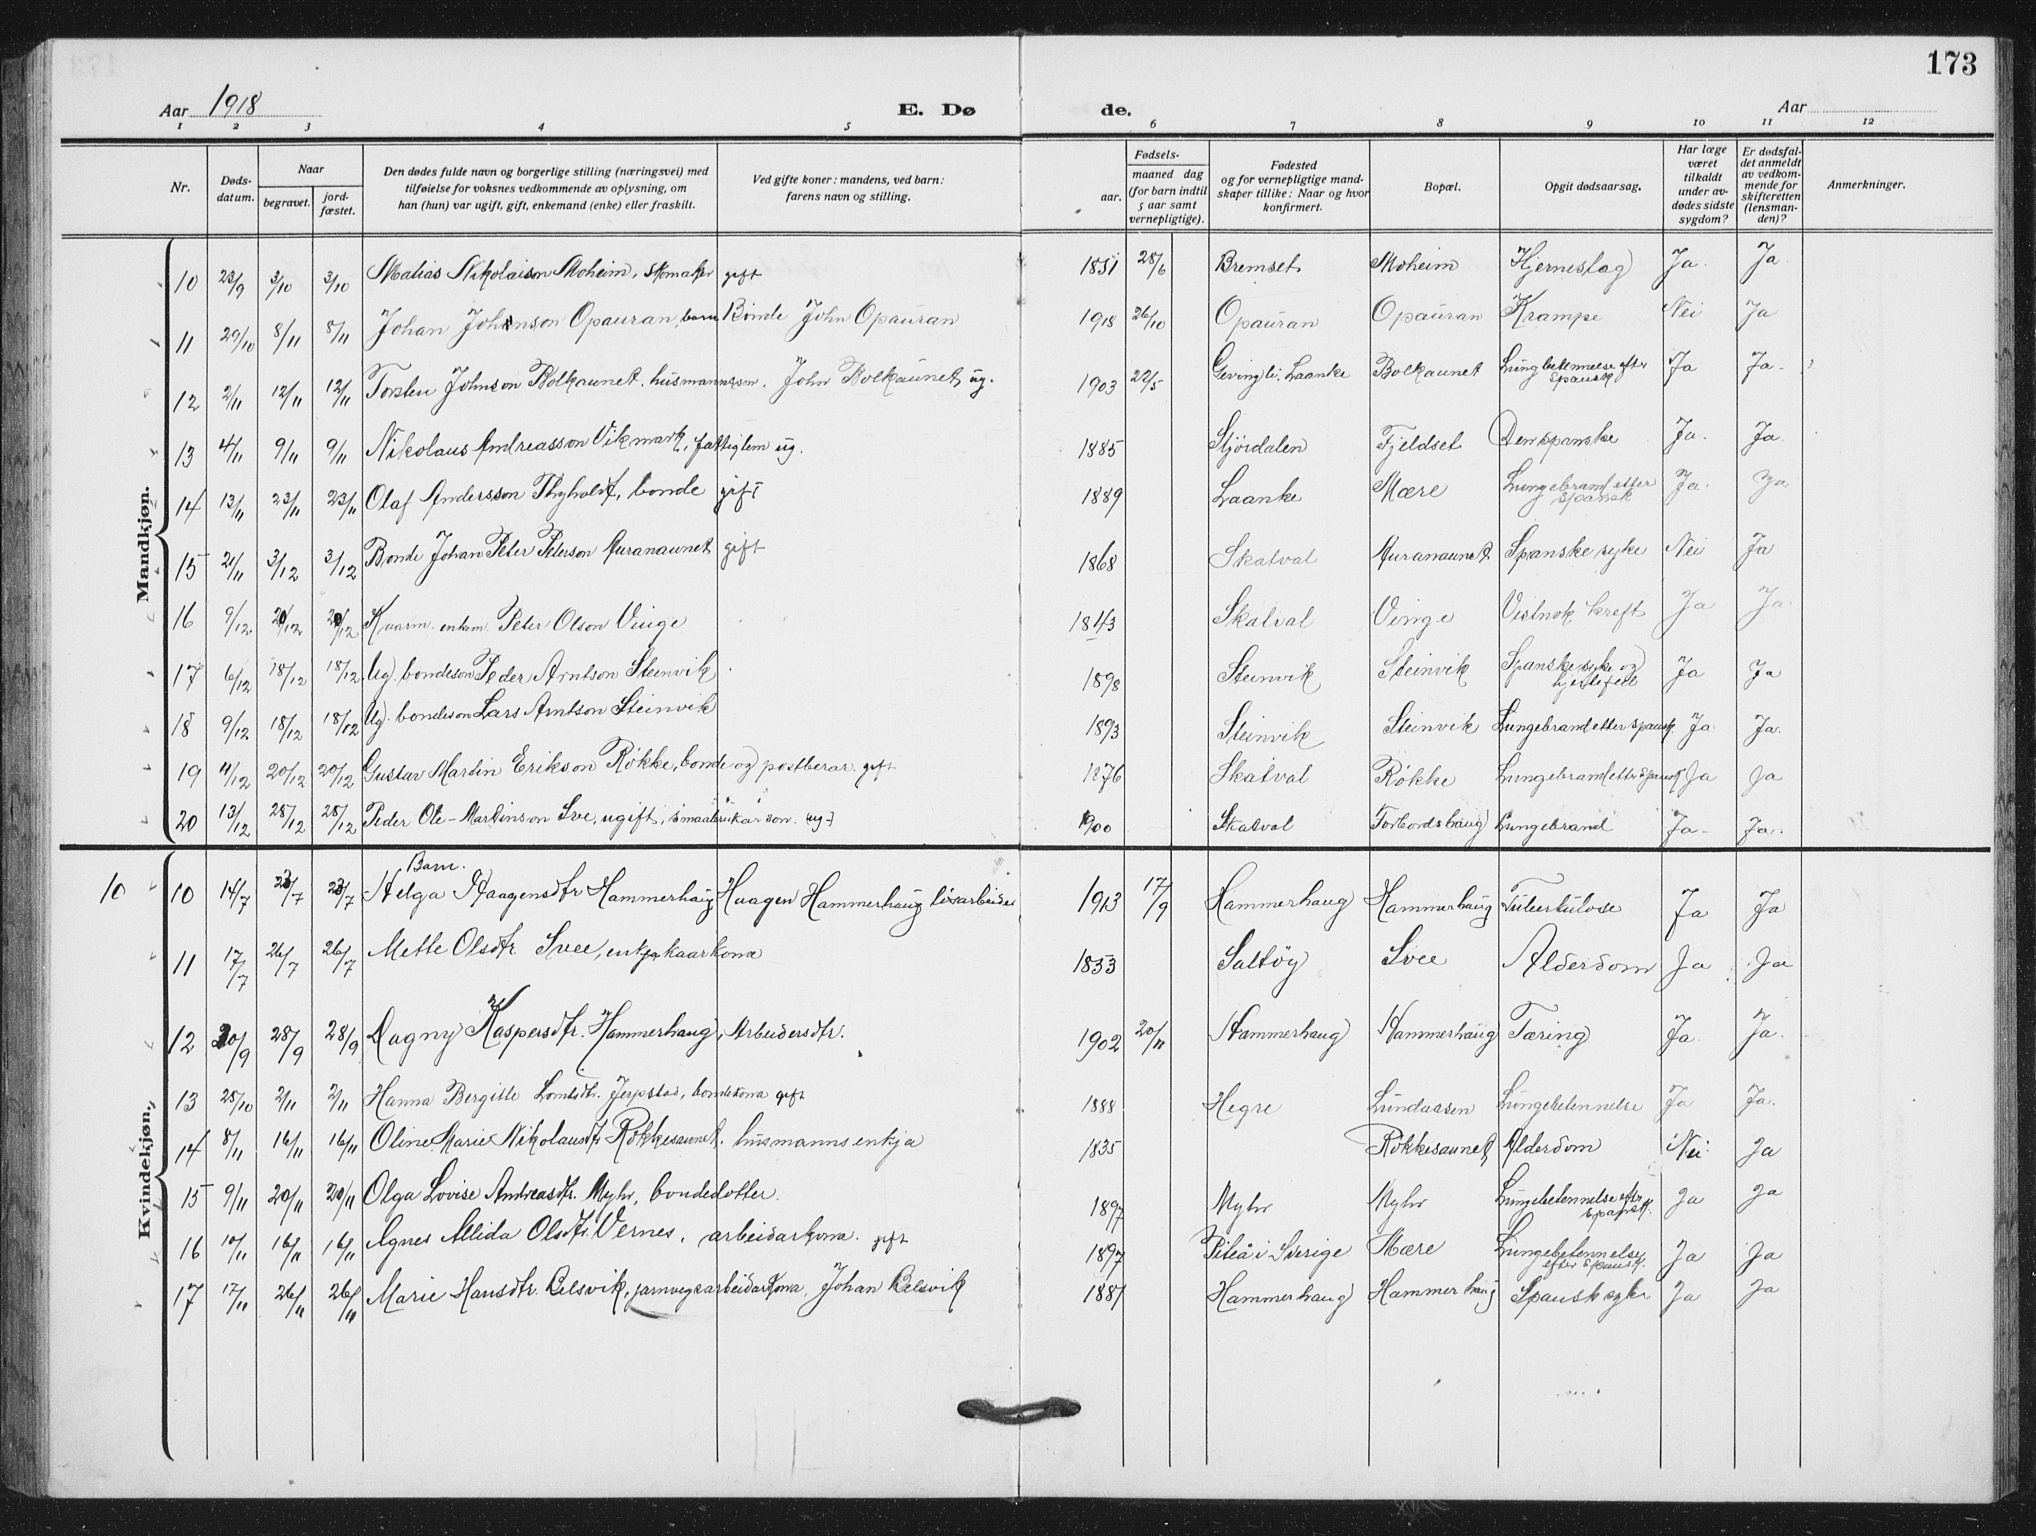 173
Aar 1918 E. Dø de. Aar
1 2 3 4 5 6 7 8 9 10 11 12
Nr. Døds-datum. Naar begravet. jord-fæstet. Den dødes fulde navn og borgerlige stilling (næringsvei) med tilføielse for voksnes vedkommende av oplysning, om han (hun) var ugift, gift, enkemand (enke) eller fraskilt. Ved gifte koner: mandens, ved barn: farens navn og stilling. Fødsels- aar. maaned dag (for barn indtil 5 aar samt vernepligtige). Fødested og for vernepligtige mand-skaper tillike: Naar og hvor konfirmert. Bopæl. Opgit dødsaarsag. Har læge været tilkaldt under av-dødes sidste sygdom? Er dødsfal-det anmeldt av vedkom-mende for skifteretten (lensman-den)? Anmerkninger.
Mandkjøn.
10 23/9 3/10 3/10 Matias Nikolaison Moheim, skomaker gift 1851 28/6 Bremset Moheim Hjerneslag Ja. Ja.
11 29/10 8/11 8/11 Johan Johnson Opauran, barn Bonde John Opauran 1918 26/10 Opauran Opauran Krampe Nei Ja
12 2/11 12/11 12/11 Torsten Johnson Bolkaunet, husmannsson. John Bolkaunet, ug. 1903 22/5 Gevingli, Laanke Bolkaunet Lungbetennelse efter Spansk Ja Ja.
13 4/11 9/11 9/11 Nikolaus Andreasson Vikmark, fattiglem ug. 1885 Stjørdalen Fjeldset Den spanske Ja. Ja.
14 13/11 23/11 23/11 Olaf Andersson Thyholdt, bonde gift 1889 Laanke Mære Lungebrand etter Spansk Ja. Ja
15 21/11 3/12 3/12 Bonde Johan Peter Peterson Auranaunet gift 1868 Skatval Auranaunet Spanske syke Nei Ja
16 9/12 20/12 20/12 Kaarm. enkem. Peter Olson Vinge 1843 Skatval Vinge Vistnok kreft Ja Ja.
17 6/12 18/12 18/12 Ug. bondeson Peder Arntson Steinvik 1898 Steinvik Steinvik Spanske syke og hjertefeil Ja Ja
18 9/12 18/12 18/12 Ug. bondeson Lars Arntson Steinvik 1893 Steinvik Steinvik Lungebrand etter spansk Ja Ja.
19 11/12 20/12 20/12 Gustav Martin Erikson Røkke, bonde og postberar. gift 1876 Skatval Røkke Lungebrand etter spansk Ja Ja
20 13/12 28/12 28/12 Peder Ole-Martinson Sve, ugift, smaabrukarson. (ug.) 1900 Skatval Forbordshaug Lungebrand Ja. Ja.
Kvindekjøn.
Barn.
10 10 14/7 23/7 23/7 Helga Haagensdtr Hammerhaug Haagen Hammerhaug løsarbeider 1913 17/9 Hammerhaug Hammerhaug Tuberkulose Ja Ja
11 17/7 26/7 26/7 Mette Olsdtr Svee, enkja kaarkona 1833 Saltøy Svee Alderdom Ja Ja
12 20/9 28/9 28/9 Dagny Kaspersdtr. Hammerhaug, Arbeidersdtr. 1902 20/11 Hammerhaug Hammerhaug Tæring Ja Ja.
13 25/10 2/11 2/11 Hanna Bergitte Jerpstad, bondekona gift 1888 Hegre Lundaasen Lungebetennelse Ja Ja.
14 8/11 16/11 16/11 Oline Marie Nikolausdtr Røkkesaunet. husmannsenkja 1835 Røkkesaunet Alderdom Nei Ja
15 9/11 20/11 20/11 Olga Lovise Andreasdtr. Myhr, bondedotter. 1897 Myhr Myhr Lungebetennelse efter spansk. Ja Ja
16 10/11 16/11 16/11 Agnes Allida Olsdtr. Vernes, arbeidarkona. gift 1897 Piteå i Sverige Mære Lungebetennelse efter spansk. Ja Ja
17 17/11 26/11 26/11 Marie Hansdtr. Belsvik, jarnvegsarbeidarkona, Johan Belsvik 1887 Hammerhaug Hammerhaug Spansk syke Ja Ja